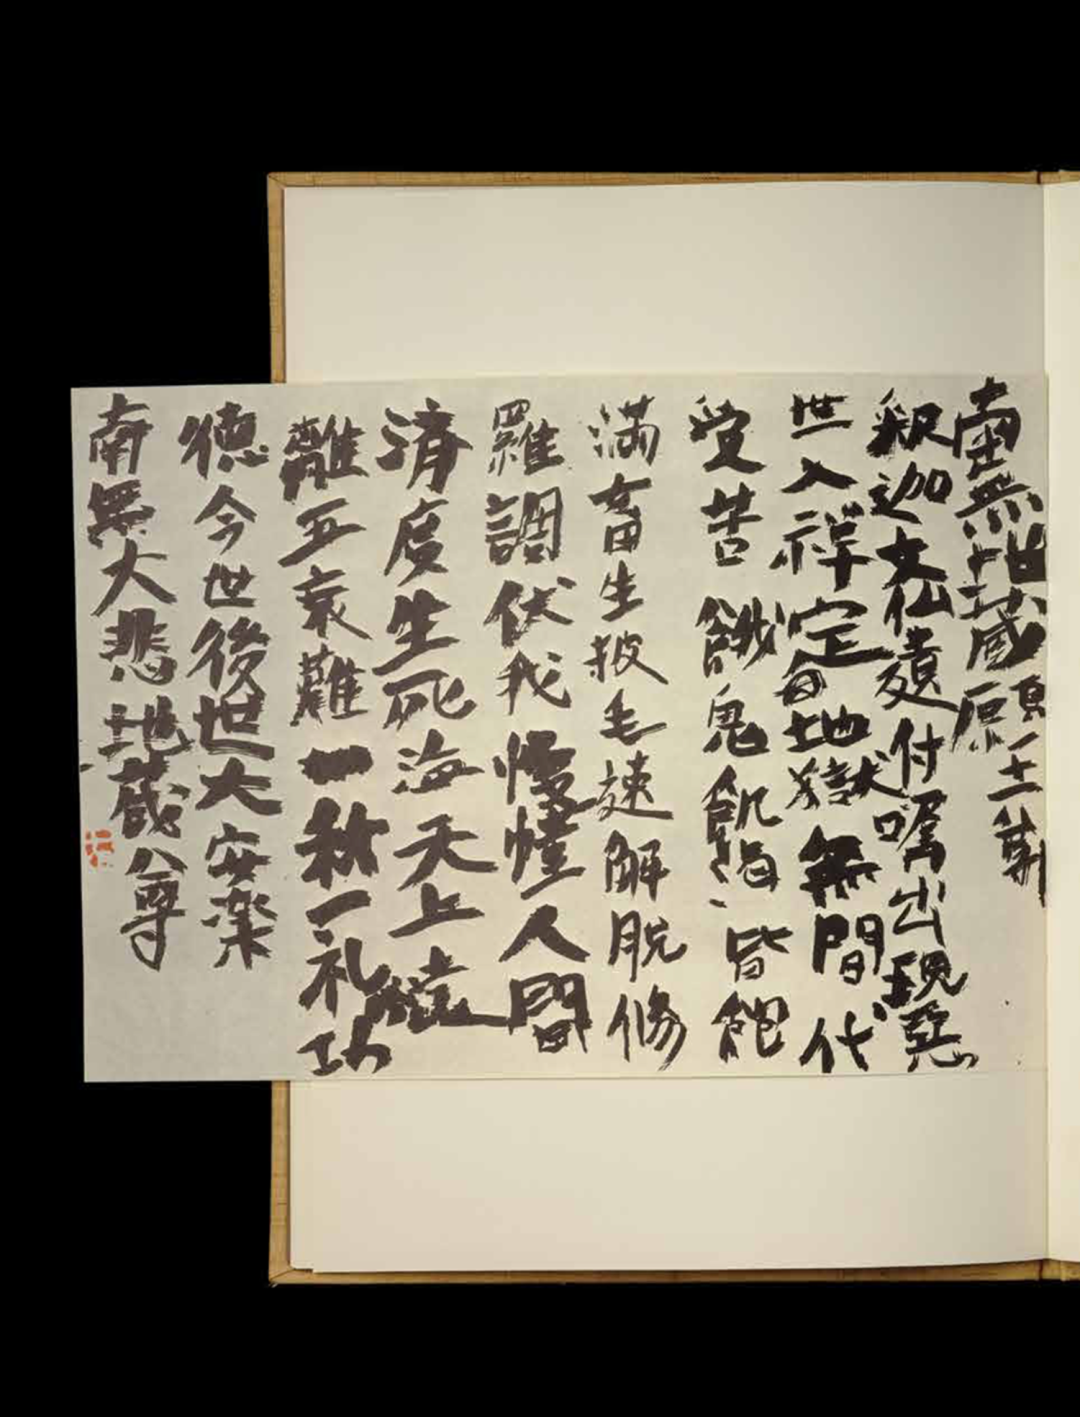 南無地蔵願王尊
釈迦文仏遺付嘱出現惡
世入禅定毎地獄無間代
受苦餓鬼飢渇皆飽
満畜生披毛速解脱修
羅調伏我慢幢人間
済度生死海天上能
離五衰難一秋一礼功
徳今世後世大安楽
南無大悲地蔵尊